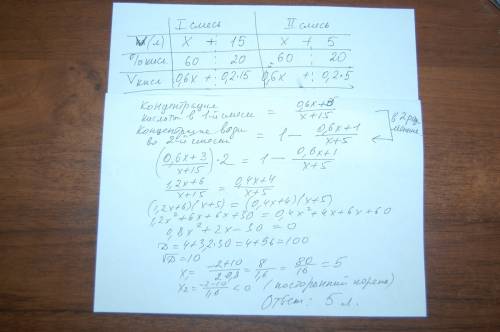 I смесь II смесь
V(л) x + 15 x + 5
% кисл. 60 20 60 20
Vкисл 0,6x + 0,2·15 0,6x + 0,2·5
Концентрация
кислоты в 1-й смеси = 0,6x+3/x+15
Концентрация воды
во 2-й смеси = 1 − 0,6x+1/x+5
в 2 раза
меньше
(0,6x+3/x+15)·2 = 1 − 0,6x+1/x+5
1,2x+6/x+15 = 0,4x+4/x+5
(1,2x+6)(x+5) = (0,4x+4)(x+5)
1,2x²+6x+6x+30 = 0,4x²+4x+6x+60
0,8x²+2x−30 = 0
D = 4+3,2·30 = 4+96 = 100
√D = 10
x₁ = −2+10/2·0,8 = 8/1,6 = 80/16 = 5
x₂ = −2−10/1,6 < 0 (посторонний корень)
Ответ: 5 л.